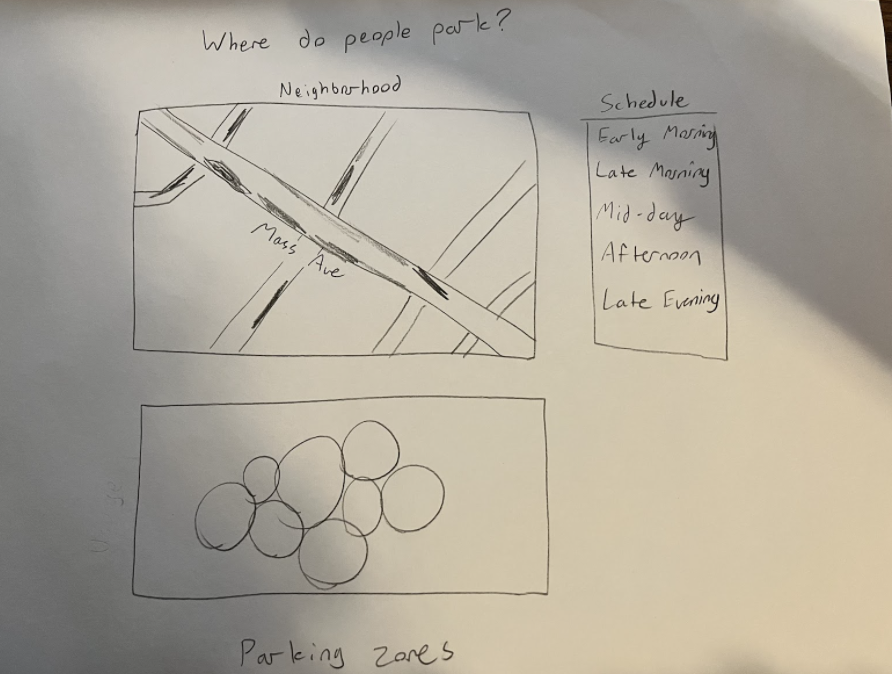 Where do people park?
Neighborhood
Mass Ave
Schedule
Early Morning
Late Morning
Mid-day
Afternoon
Late Evening
Parking zones